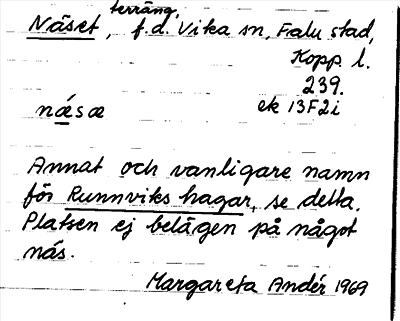 terräng,
Näset, f.d. Vika sn, Falu stad,
Kopp. l.
239.
næsæ ek 13F2i
Annat och vanligare namn
för Runnviks hagar, se detta.
Platsen ej belägen på något
näs.
Margareta Andér 1969